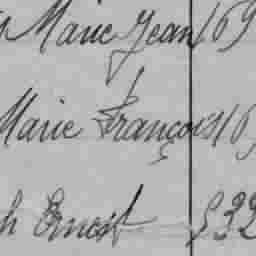 Marie Jean 169
Marie François 169
h Ernest 532